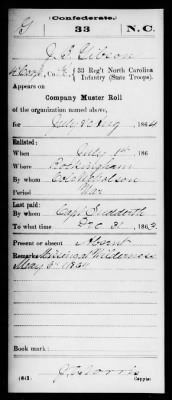 (Confederate.)
G 33 N.C.
J. B. Gibson
4 Corp, Co. G, 33 Reg't North Carolina Infantry (State Troops).
Appears on
Company Muster Roll
of the organization named above,
for July & Aug, 1864
Enlisted:
When July 1st, 186
Where Rockingham
By whom Col. Nicholson
Period War
Last paid:
By whom Capt.
To what time Dec. 31, 1863.
Present or absent Absent
Remarks: Missing at Wilderness
May 6" 1864
Book mark:
(642) Morris
Copyist.